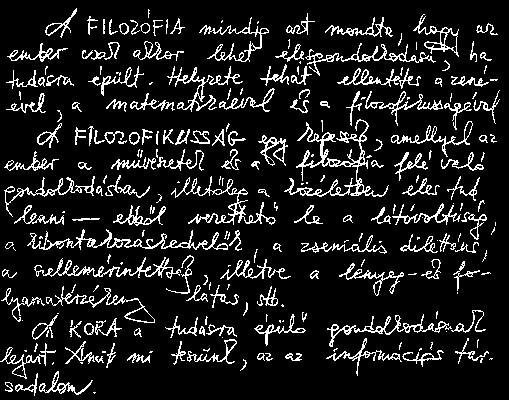 A FILOZÓFIA mindig azt mondta, hogy az
ember csak akkor lehet élesgondolkodású, ha
tudásra épült. Helyzete tehát ellentétes a zené-
ével, a matematikáéval és a filozofikusságéval
A FILOZOFIKUSSÁG egy képesség, amellyel az
ember a művészetek és a filozófia felé való
gondolkodásban, illetőleg a közéletben éles tud
lenni — ebből vezethető le a látóvoltúság,
a kibontakozáskedvelők, a zseniális dilettáns,
a szellemérintettség, illetve a lényeg- és fo-
lyamatérzéken látás, stb.
A KORA a tudásra épülő gondolkodásnak
lejárt. Amit mi teszünk, az az információs tár-
sadalom.